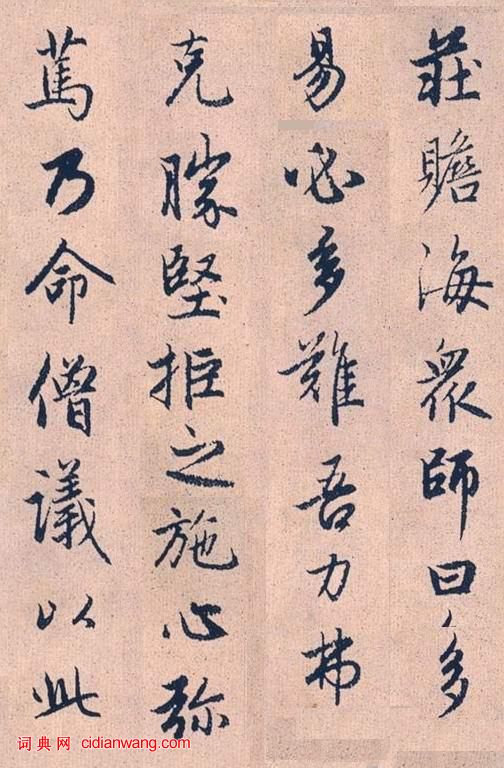 莊贍海衆師曰多
易必多難吾力弗
克勝堅拒之施心弥
篤乃命僧議以此
词典网 cidianwang.com